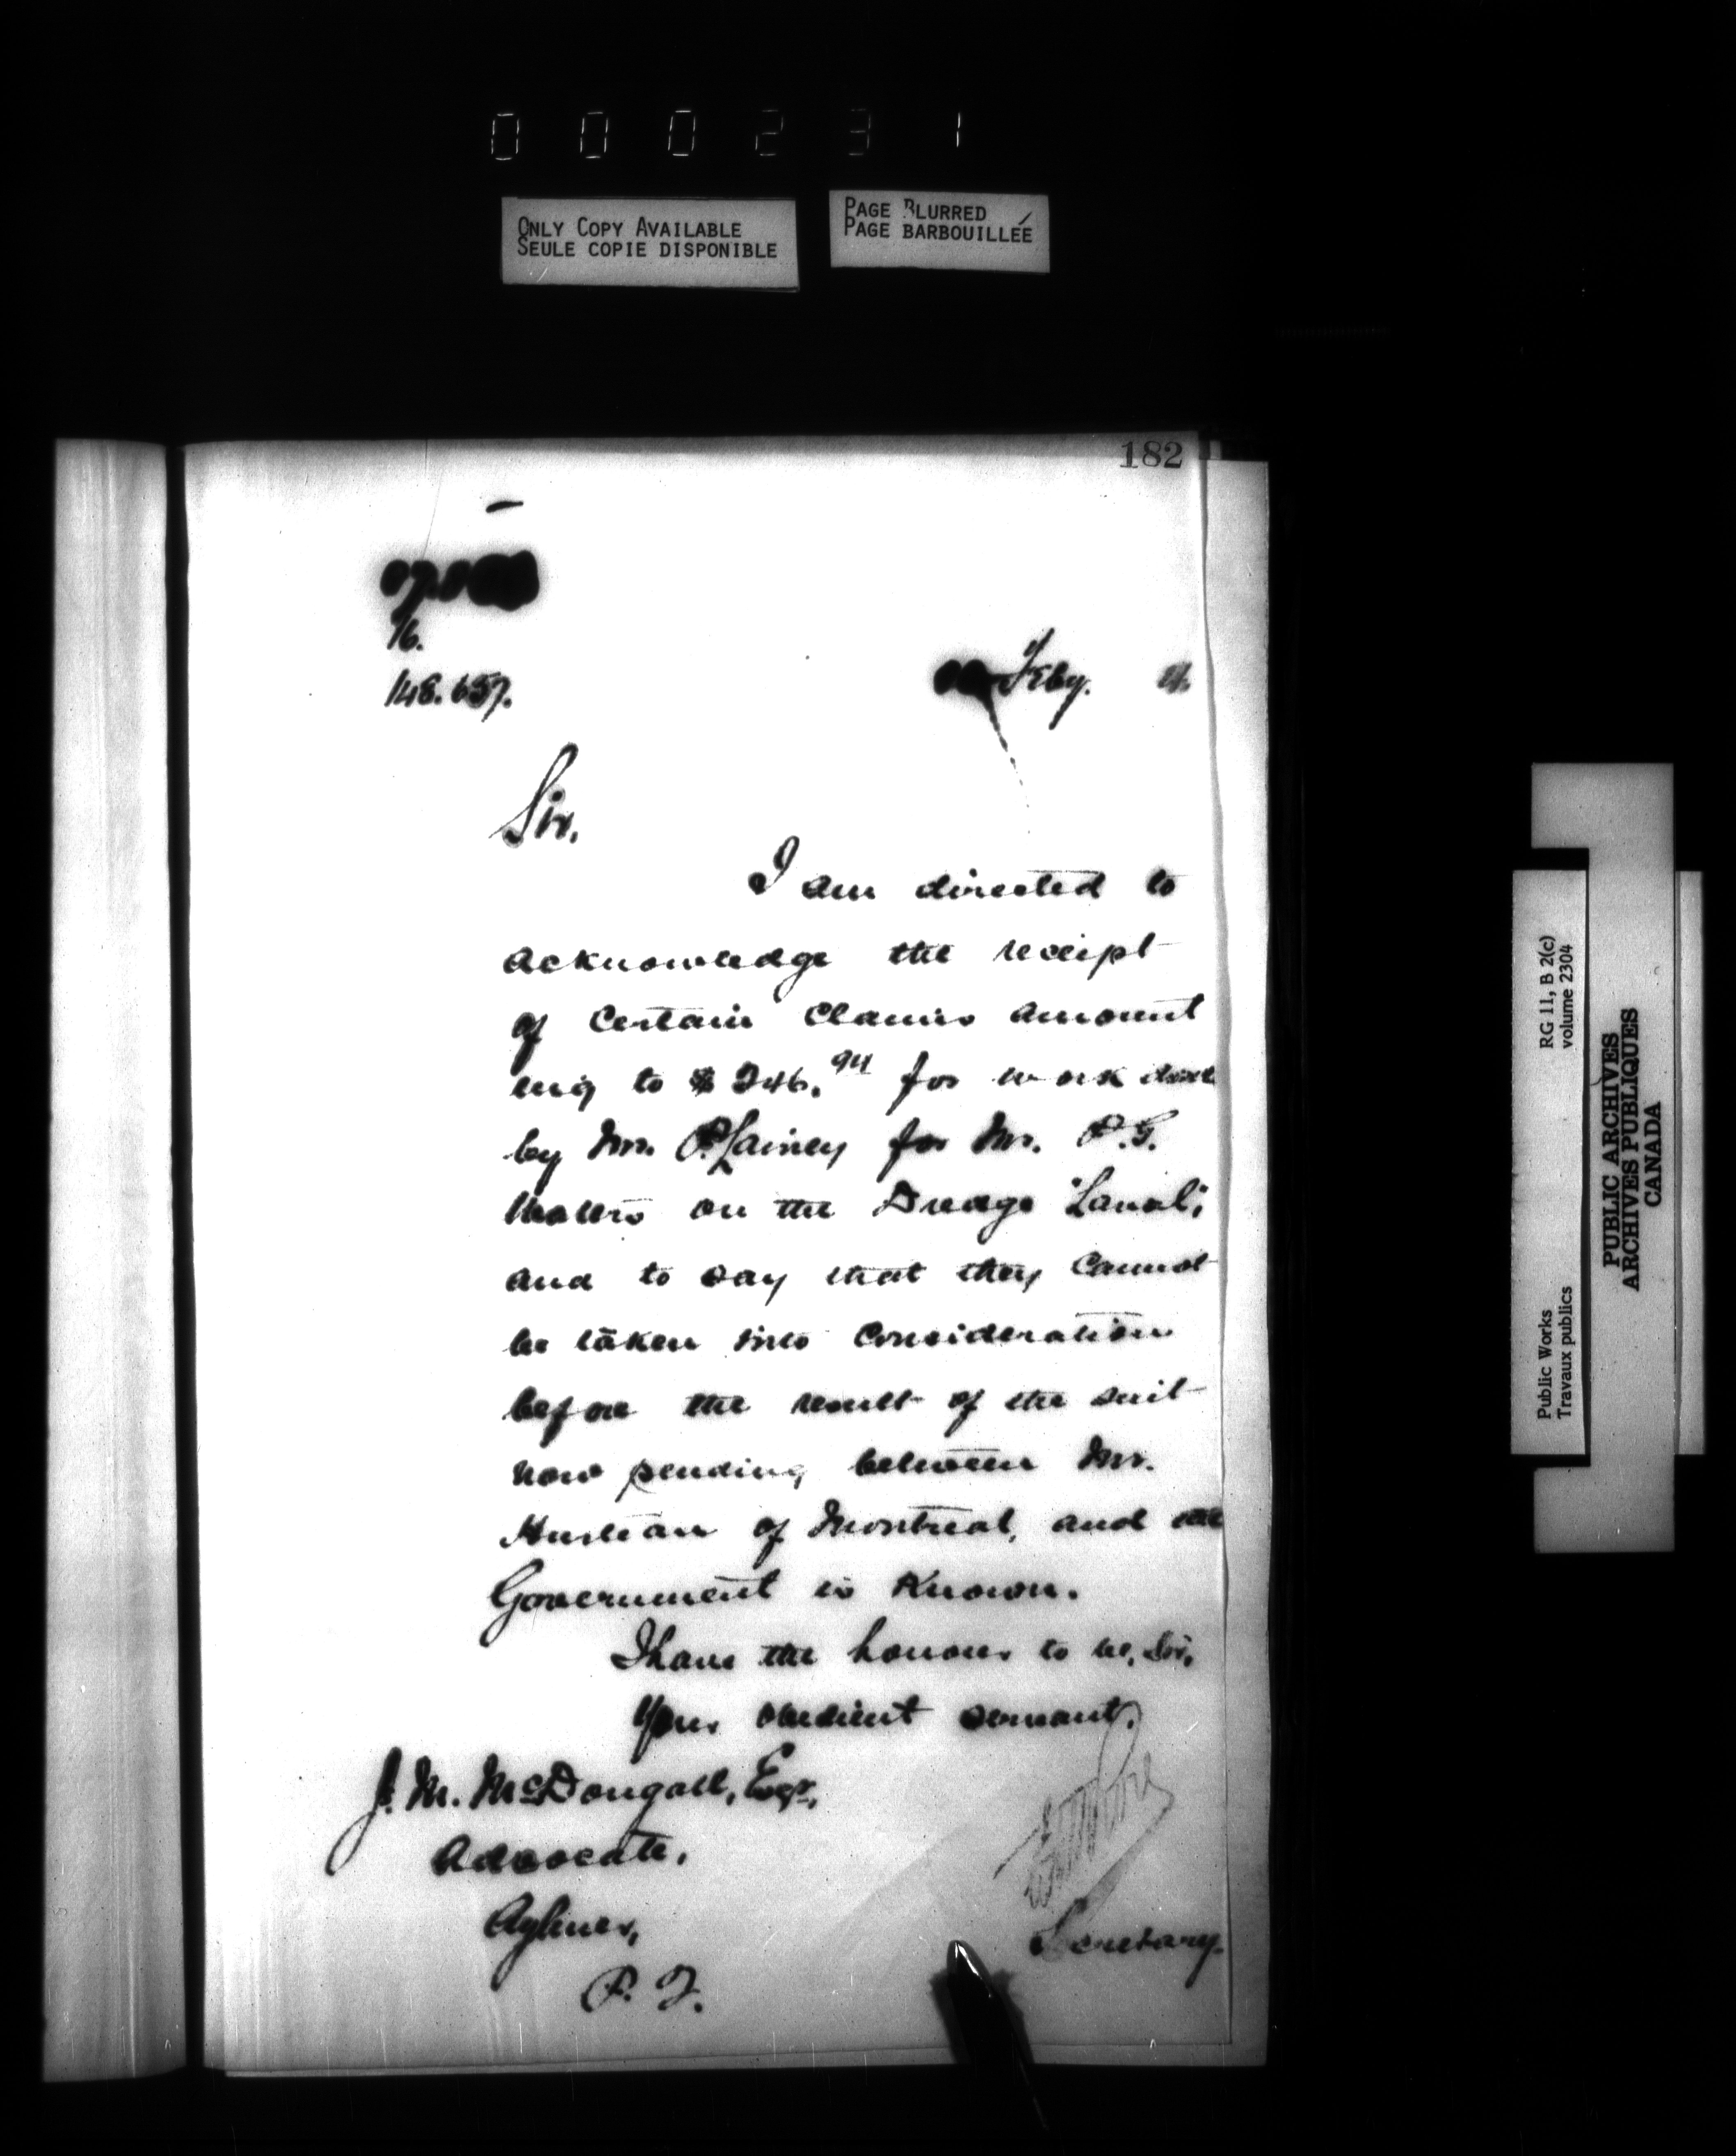 000231
ONLY COPY AVAILABLE
SEULE COPIE DISPONIBLE
PAGE BLURRED
PAGE BARBOUILLÉE
182
16.
148.657.
Feby.
Sir,
I am directed to
acknowledge the receipt
of certain claims amount
ing to $246.94 for work done
by Mr. P. Lainey for Mr. P. G.
on the Dredge "Canal",
and to say that they cannot
be taken into consideration
before the result of the suit
now pending between Mr.
of Montreal, and the
Government is known.
I have the honour to be, Sir,
Your obedient servant,
J. M. McDougall, Esqr.,
Advocate,
Aylmer,
P. Q.
Secretary.
RG 11, B 2(c)
volume 2304
Public Works
Travaux publics
PUBLIC ARCHIVES
ARCHIVES PUBLIQUES
CANADA